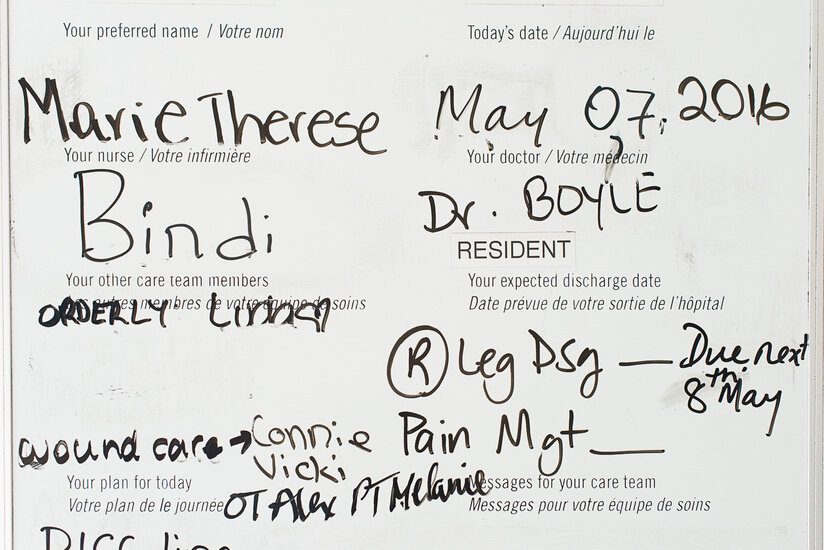 Your preferred name / Votre nom
Today's date / Aujourd'hui le
Marie Therese
May 07, 2016
Your nurse / Votre infirmière
Your doctor / Votre médecin
Bindi
Dr. BOYLE
RESIDENT
Your other care team members
Your expected discharge date
autres membres de votre équipe de soins
Date prévue de votre sortie de l'hôpital
ORDERLY
R Leg DSg — Due next
8th May
wound care → Connie
Pain Mgt —
Vicki
Your plan for today
Messages for your care team
OT Alex PT Melanie
Votre plan de la journée
Messages pour votre équipe de soins